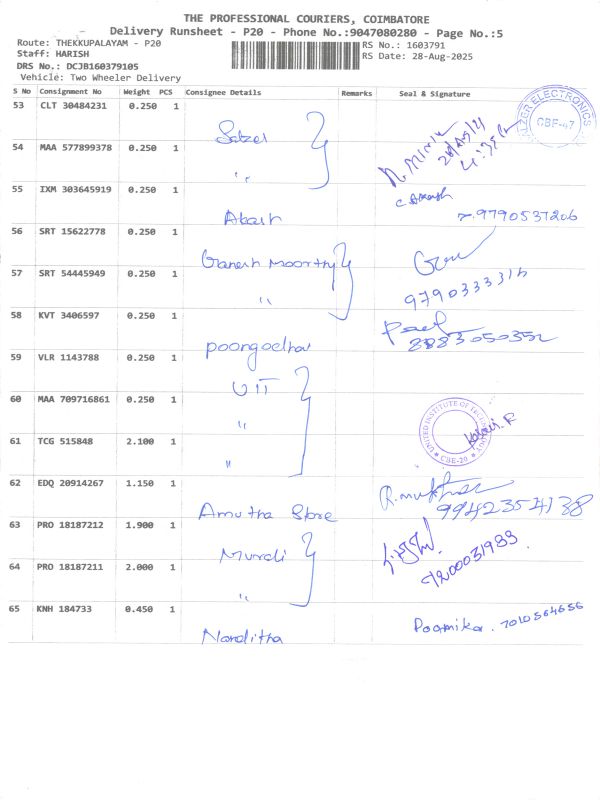 THE PROFESSIONAL COURIERS, COIMBATORE
Delivery Runsheet - P20 - Phone No.:9047080280 - Page No.:5
Route: THEKKUPALAYAM - P20
RS No.: 1603791
Staff: HARISH
RS Date: 28-Aug-2025
DRS No.: DCJB160379105
Vehicle: Two Wheeler Delivery
S No Consignment No Weight PCS Consignee Details Remarks Seal & Signature
53 CLT 30484231 0.250 1
Salzer
SALZER ELECTRONICS
CBE-47
54 MAA 577899378 0.250 1
"
55 IXM 303645919 0.250 1
Akash
C. Akash
9790537206
56 SRT 15622778 0.250 1
Ganesh Moorthy
57 SRT 54445949 0.250 1
"
58 KVT 3406597 0.250 1
59 VLR 1143788 0.250 1
UIT
60 MAA 709716861 0.250 1
"
UNITED INSTITUTE OF TECHNOLOGY
CBE-20
61 TCG 515848 2.100 1
"
62 EDQ 20914267 1.150 1
Amutha Store
63 PRO 18187212 1.900 1
Murali
7200031933
64 PRO 18187211 2.000 1
"
65 KNH 184733 0.450 1
Nanditha
Poomika. 7010564656